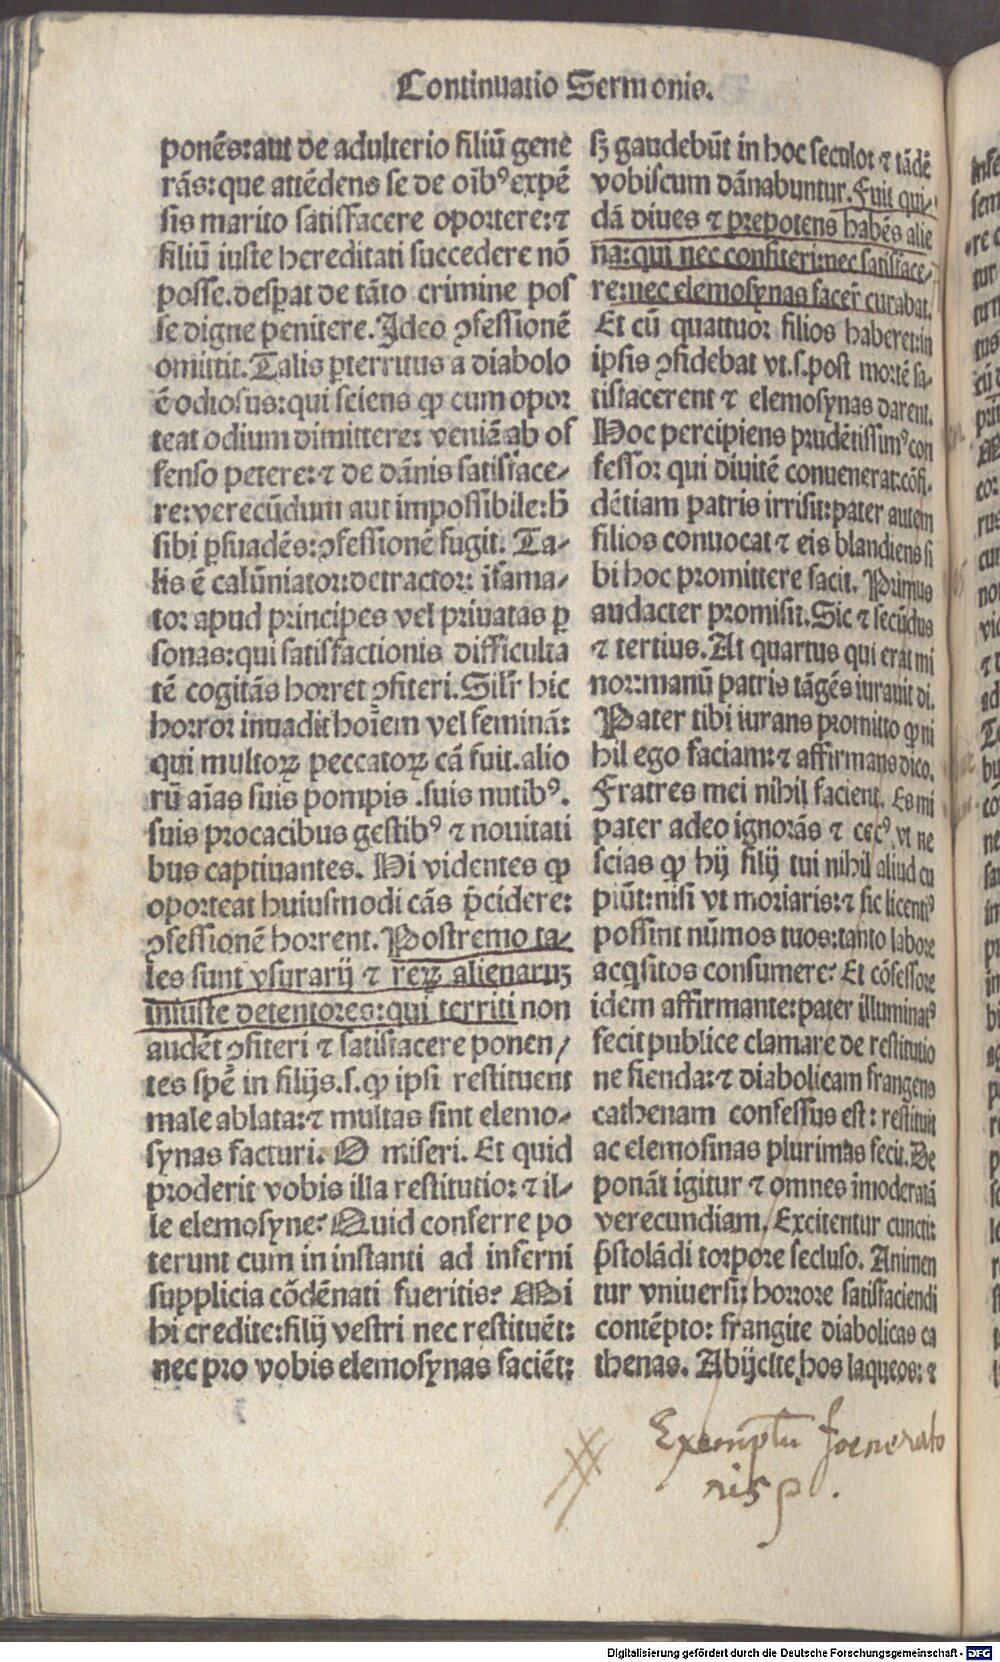 Continuatio Sermonis.
ponẽs: aut de adulterio filiũ gene
rãs: que attẽdens se de oĩbꝰ expẽ
sis marito satisfacere oportere: ⁊
filiũ iuste hereditati succedere nõ
posse. desꝑat de tãto crimine pos
se digne penitere. Ideo ꝯfessionẽ
omittit. Talis ꝑterritus a diabolo
ẽ odiosus: qui sciens ꝙ cum opor
teat odium dimittere: veniã ab of
fenso petere: ⁊ de dãnis satisface⸗
re: verecũdum aut impossibile: h̃
sibi ꝑsuadẽs: ꝯfessionẽ fugit. Ta⸗
lis ẽ calũniator: detractor: ĩfama⸗
tor apud principes vel priuatas ꝑ
sonas: qui satisfactionis difficulta
tẽ cogitãs horret ꝯfiteri. Silr̃ hic
horror inuadit hoĩem vel feminã:
qui multoꝝ peccatoꝝ cã fuit. alio
rũ aĩas suis pompis .suis nutibꝰ.
suis procacibus gestibꝰ ⁊ nouitati
bus captiuantes. Hi videntes ꝙ
oporteat huiusmodi cãs p̃cidere:
ꝯfessionẽ horrent. Postremo ta⸗
les sunt vsurarij ⁊ reꝝ alienaruʒ
iniuste detentores: qui territi non
audẽt ꝯfiteri ⁊ satisfacere ponen/
tes spẽ in filijs .s. ꝙ ipsi restituent
male ablata: ⁊ multas sint elemo⸗
synas facturi. O miseri. Et quid
proderit vobis illa restitutio: ⁊ il⸗
le elemosyne? Quid conferre po
terunt cum in instanti ad inferni
supplicia cõdẽnati fueritis? Mi
hi credite: filij vestri nec restituẽt:
nec pro vobis elemosynas faciẽt:
sʒ gaudebũt in hoc seculo: ⁊ tãdẽ
vobiscum dãnabuntur. Fuit qui⸗
dã diues ⁊ prepotens habẽs alie
na: qui nec confiteri: nec satisface⸗
re: nec elemosynas facer̃ curabat.
Et cũ quattuor filios haberet: in
ipsis ꝯfidebat vt .s. post mortẽ sa⸗
tisfacerent ⁊ elemosynas darent.
Hoc percipiens prudẽtissimꝰ con
fessor qui diuitẽ conuenerat: cõfi⸗
dẽtiam patris irrisit: pater autem
filios conuocat ⁊ eis blandiens si
bi hoc promittere facit. Primus
audacter promisit. Sic ⁊ secũdus
⁊ tertius. At quartus qui erat mi
nor: manũ patris tãgẽs iurauit di.
Pater tibi iurans promitto ꝙ ni
hil ego faciam: ⁊ affirmans dico.
Fratres mei nihil facient. Es mi
pater adeo ignorãs ⁊ cecꝰ vt ne
scias ꝙ hij filij tui nihil aliud cu
piũt: nisi vt moriaris: ⁊ sic licentiꝰ
possint nũmos tuos: tanto labore
acq̃sitos consumere? Et cõfessore
idem affirmante: pater illuminatꝰ
fecit publice clamare de restitutio
ne fienda: ⁊ diabolicam frangens
cathenam confessus est: restituit
ac elemosinas plurimas fecit. De
ponãt igitur ⁊ omnes imoderatã
verecundiam. Excitentur cuncti:
p̃stolãdi torpore secluso. Animen
tur vniuersi: horrore satisfaciendi
contẽpto: frangite diabolicas ca
thenas. Abijcite hos laqueos: ⁊
Exemplũ foenerato
ris